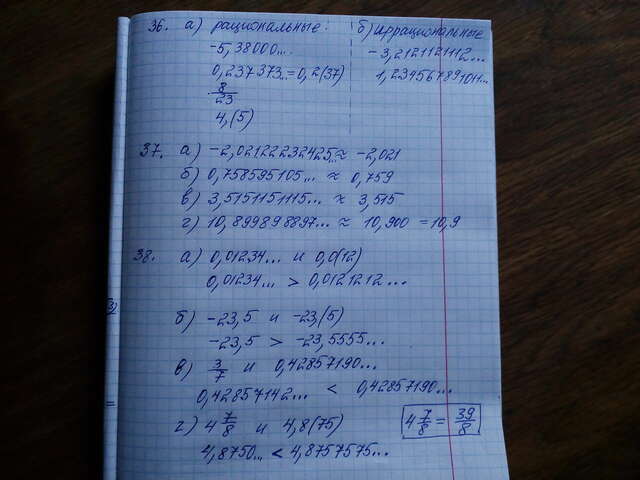 36. а) рациональные: б) иррациональные
-5,38000... -3,2121121112...
0,237373...=0,2(37) 1,234567891011...
8/23
4,(5)
37. а) -2,02122232425... ≈ -2,021
б) 0,758595105... ≈ 0,759
в) 3,5151151115... ≈ 3,515
г) 10,899898897... ≈ 10,900 = 10,9
38. а) 0,01234... и 0,0(12)
0,01234... > 0,0121212...
б) -23,5 и -23,(5)
-23,5 > -23,5555...
в) 3/7 и 0,42857190...
0,42857142... < 0,42857190...
г) 4 7/8 и 4,8(75) 4 7/8 = 39/8
4,8750... < 4,8757575...